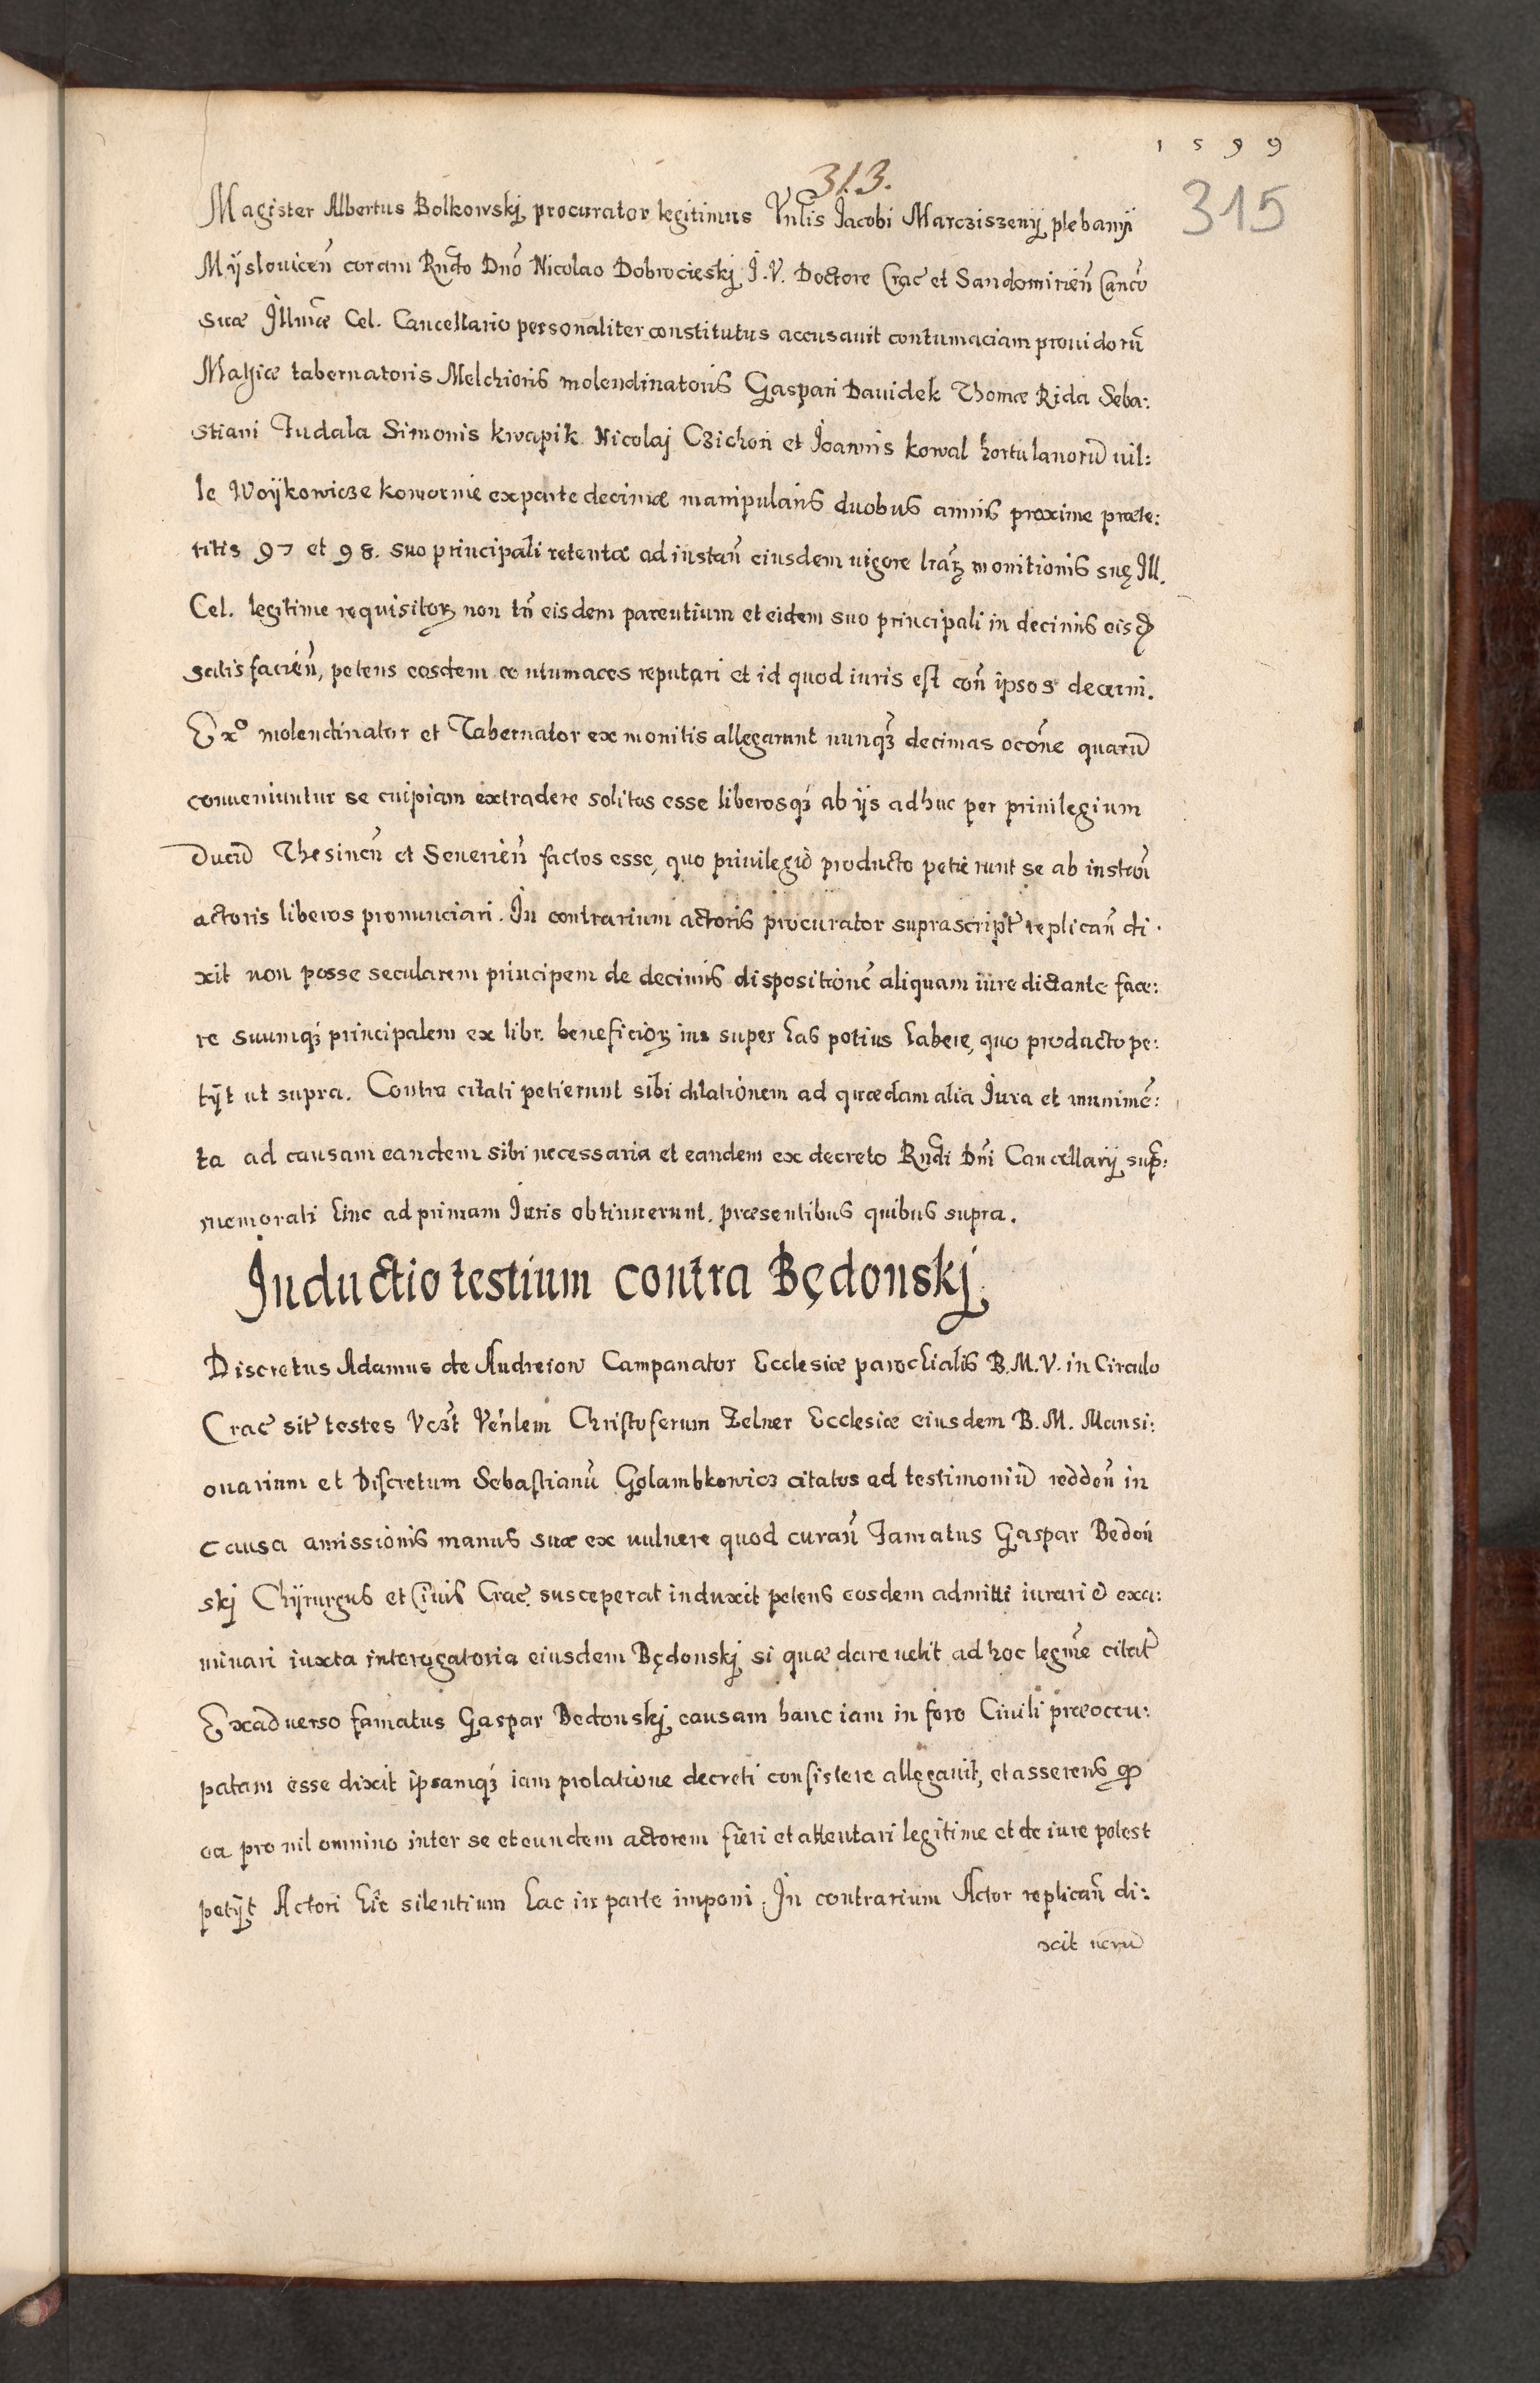 1 5 9 9
313.
315
Magister Albertus Bolkowskj procurator legitimus Vnlis Jacobi Marcziszenij plebanij
Mijslouiceñ coram Rndo Dno Nicolao Dobrocieskj J.V. Doctore Crac̃ et Sandomirieñ Canco
suæ Jllmæ Cel. Cancellario personaliter constitutus accusauit contumaciam prouidorũ
tabernatoris Melchioris molendinatoris Gaspari Dauidek Thomæ Rida Seba:
stiani Fudala Simonis kwapik Nicolaj Czichoń et Joannis kowal hortulanorũ uil:
le Woijkowicze kowornie ex parte decimæ manipularis duobus annis proxime præte:
ritis 97 et 98. suo principali retentæ ad instañ eiusdem uigore lrãꝝ monitionis suę Jll.
Cel. legitime requisitoꝝ non tñ eisdem parentium et eidem suo principali in decimis eisd
satisfacieñ, petens eosdem contumaces reputari et id quod iuris est coñ ipsos decerni.
Exº molendinator et Tabernator ex monitis allegarunt nunqꝫ decimas ocõne quarũ
conueniuntur se cuipiam extradere solitos esse liberosqꝫ ab ijs adhuc per priuilegium
Ducũ Thesineñ et Seuerieñ factos esse, quo priuilegio producto petierunt se ab instañ
actoris liberos pronunciari. Jn contrarium actoris procurator suprascript̃ replicañ di:
xit non posse secularem principem de decimis dispositionẽ aliquam iure dictante face:
re suumqꝫ principalem ex libr. beneficioꝝ ius super has potius habere, quo producto pe:
tijt ut supra. Contra citati petierunt sibi dilationem ad quædam alia Jura et munimẽ:
ta ad causam eandem sibi necessaria et eandem ex decreto Rndi Dñi Cancellarij sup̃:
memorati hinc ad primam Juris obtinuerunt. præsentibus quibus supra.
Jnductio testium contra Będonskj
Discretus Adamus de Andreiow Campanator Ecclesiæ parochialis B.M.V. in Circulo
Crac̃ sit̃ testes Vczt Veñlem Christoferum Zelner Ecclesiæ eiusdem B.M. Mansi:
onarium et Discretum Sebastianũ Golambkowicz citatos ad testimoniũ reddeñ in
causa amissionis manus suæ ex uulnere quod curañ Famatus Gaspar Bedoń
skj Chijrurgus et Ciuis Crac̃. susceperat induxit petens eosdem admitti iurari et exa:
minari iuxta interogatoria eiusdem Będonskj si quæ dare uelit ad hoc legme citat̃
Ex aduerso famatus Gaspar Bedonskj causam hanc iam in foro Ciuili præoccu:
patam esse dixit ipsamqꝫ iam prolatione decreti consistere allegauit, et asserens
ea pro nil omnino inter se et eundem actorem fieri et attentari legitime et de iure potest
petijt Actori hic silentium hac in parte imponi. Jn contrarium Actor replicañ di:
xit uerũ